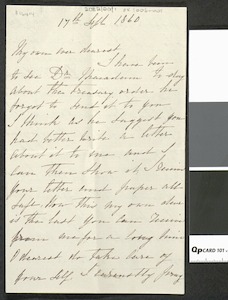 17th Sept 1860
My own ever dearest
I have been
to see Dr to day
about the treasury order he
forgot to send it to you
I think as he suggest you
had better write a letter
about it to me and I
can then show it
your letter and paper all
safe. Now this my own
is the last you can
from me for a long time
dearest do take care of
your self. I earnestly pray
QP CARD 101